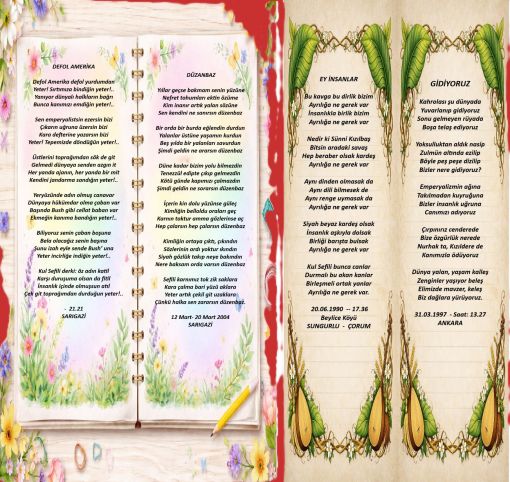 DEFOL AMERİKA
Defol Amerika defol yurdumdan
Yeter! Sırtımıza bindiğin yeter!..
Yanıyor dünyalı halkların bağrı
Bunca kanımızı emdiğin yeter!..
Sen emperyalistsin ezersin bizi
Çıkarın uğruna üzersin bizi
Kara defterine yazarsın bizi
Yeter! Tepemizde döndüğün yeter!..
Üstlerini toprağımdan sök de git
Gelmedi dünyaya senden azgın it
Her yanda ajanın, her yanda bir mit
Kendini jandarma sandığın yeter!..
Yeryüzünde adın olmuş canavar
Dünyaya hükümdar olma çaban var
Başında Bush gibi cellat baban var
Ekmeğin kanıma bandığın yeter!..
Biliyoruz senin çaban boşuna
Bela olacağız senin başına
Sunu izah eyle sende Bush' una
Yeter inciliğe indiğin yeter!..
Kul Sefili derki: öz adın katil
Karşı duruşuma olsan da fitil
İnsanlık içinde olmuşsun atıl
Çek git toprağımdan durduğun yeter!..
- 21.21
SARIGAZİ
DÜZANBAZ
Yıllar geçse bakmam senin yüzüne
Nefret tohumları ektin özüme
Kim inanır artık yalan sözüne
Sen kendini ne sanırsın düzenbaz
Bir orda bir burda eğlendin durdun
Yalanlar üstüne yaşamın kurdun
Beş yılda bir yalanları savurdun
Şimdi geldin ne ararsın düzenbaz
Düne kadar bizim yolu bilmezdin
Tenezzül edipte çıkıp gelmezdin
Kötü günde kapımızı çalmazdın
Şimdi geldin ne sorarsın düzenbaz
İçerin kin dolu yüzüne güleç
Kimliğin bellolda araları geç
Karnın toktur ama gözlerinse aç
Hep çalarsın hep çalarsın düzenbaz
Kimliğin ortaya çıktı, çıkındın
Sözlerinin ardı yoktur kındın
Siyah gözlük takıp neye bakındın
Nere baksan orda varsın düzenbaz
Sefili karnımız tok zik saklara
Kara çalma bari yüzü aklara
Yeter artık çekil git uzaklara
Çünkü halka sen zararsın düzenbaz.
12 Mart- 20 Mart 2004
SARIGAZİ
EY İNSANLAR
Bu kavga bu dirlik bizim
Ayrılığa ne gerek var
İnsanlıkla birlik bizim
Ayrılığa ne gerek var
Nedir ki Sünni Kızılbaş
Bitsin aradaki savaş
Hep beraber olsak kardeş
Ayrılığa ne gerek var
Aynı dinden olmasak da
Aynı dili bilmesek de
Aynı renge uymasak da
Ayrılığa ne gerek var
Siyah beyaz kardeş olsak
İnsanlık aşkıyla dolsak
Birliği barışta bulsak
Ayrılığa ne gerek var
Kul Sefili bunca canlar
Durmalı bu akan kanlar
Birleşmeli ortak yanlar
Ayrılığa ne gerek var.
20.06.1990 -- 17.36
Beylice Köyü
SUNGURLU - ÇORUM
GİDİYORUZ
Kahrolası şu dünyada
Yuvarlanıp gidiyoruz
Sonu gelmeyen rüyada
Boşa telaş ediyoruz
Yoksulluktan aldık nasip
Zulmün altında ezilip
Böyle peş peşe dizilip
Bizler nere gidiyoruz?
Emperyalizmin ağına
Takılmadan kuyruğuna
Bizler insanlık uğruna
Canımızı adıyoruz
Çırpınırız cenderede
Bize özgürlük nerede
Nurhak ta, Kızıldere de
Kanımızla ödüyoruz
Dünya yalan, yaşam kalleş
Zenginler yapıyor beleş
Elimizde mavzer, keleş
Biz dağlara yürüyoruz.
31.03.1997 - Saat: 13.27
ANKARA